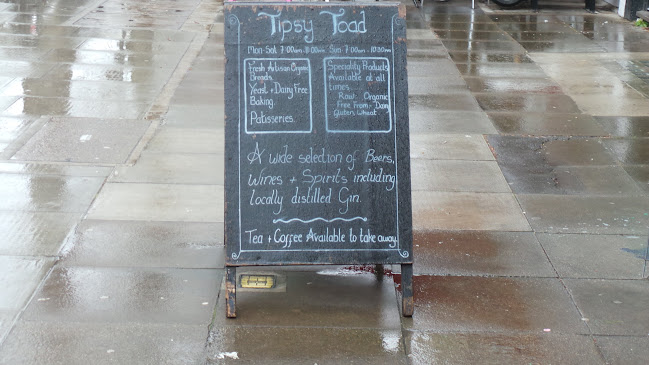 Tipsy Toad
Mon-Sat 7:00am 11:00pm Sun 7:00am 10:30pm
Fresh Artisan Organic
Breads.
Yeast + Dairy Free
Baking.
Patisseries.
Speciality Products
Available at all
times.
Raw Organic
Free From - Dairy
Gluten, Wheat
A wide selection of Beers,
Wines + Spirits including
locally distilled Gin.
Tea + Coffee Available to take away